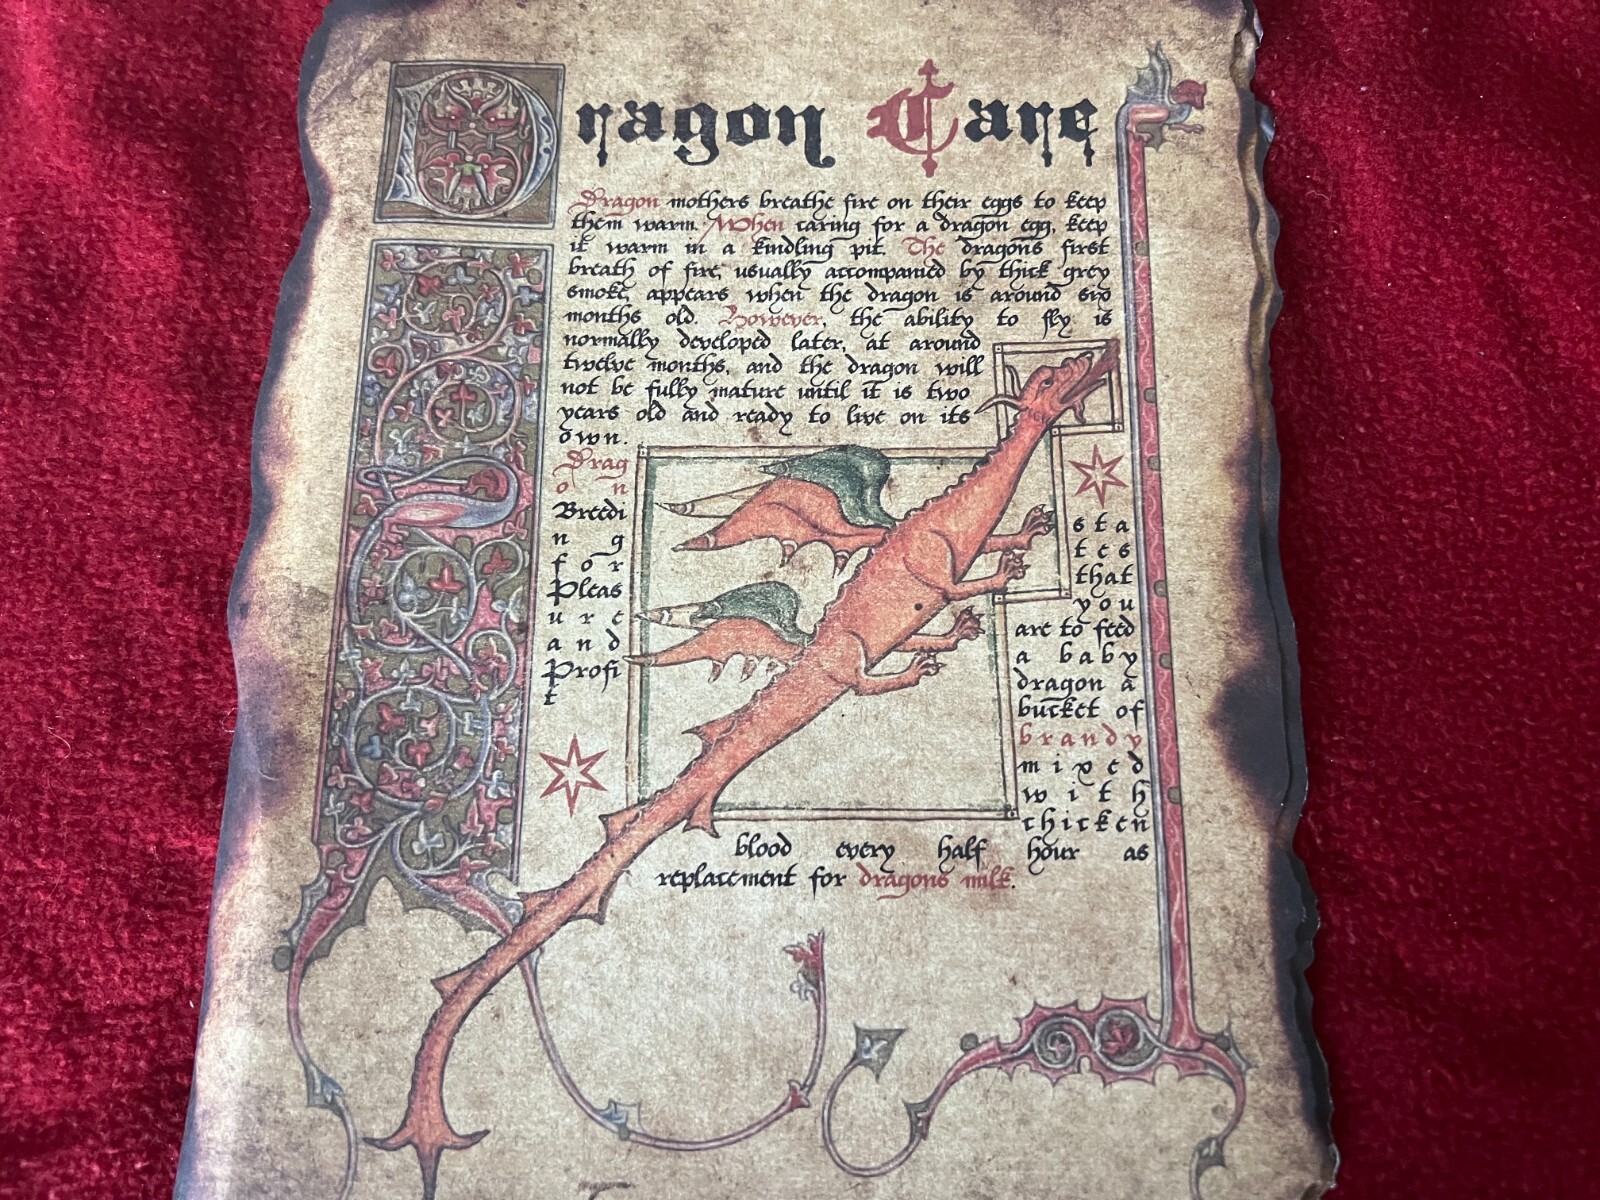 Dragon Care
Dragon mothers breathe fire on their eggs to keep
them warm. When caring for a dragon egg, keep
it warm in a kindling pit. The dragons first
breath of fire, usually accompanied by thick grey
smoke, appears when the dragon is around six
months old. However, the ability to fly is
normally developed later, at around
twelve months, and the dragon will
not be fully mature until it is two
years old and ready to live on its
own.
Drag
o n
Breedi
n g
for
Pleas
ure
and
Profi
t
sta
tes
that
you
are to feed
a baby
dragon a
bucket of
brandy
mixed
with
chicken
blood every half hour as
replacement for dragons milk.